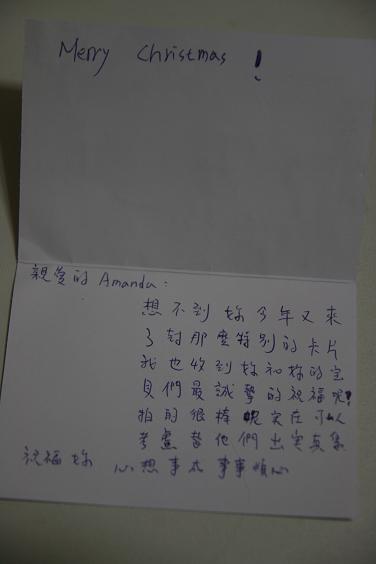 Merry Christmas !
親愛的 Amanda:
想不到妳今年又來
了封那麼特別的卡片
我也收到妳和妳的宝
貝們最誠摯的祝福呢!
拍的很棒呢实在可以
考慮替他們出写真集
祝福妳 心想事成 事事順心